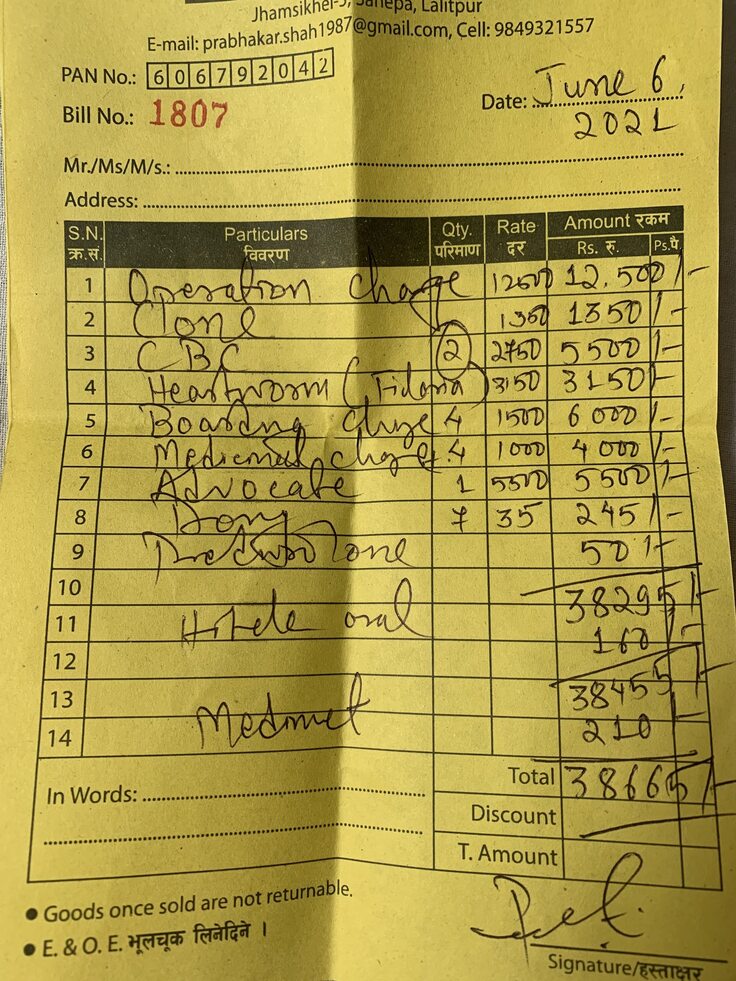 Jhamsikhel-3, Sanepa, Lalitpur
E-mail: prabhakar.shah1987@gmail.com, Cell: 9849321557
PAN No.: 606792042
Bill No.: 1807
Date: June 6, 2021
Mr./Ms/M/s.:
Address:
S.N. क्र.सं. Particulars विवरण Qty. परिमाण Rate दर Amount रकम Rs. रु. Ps.पै
1 Operation charge 12500 12,500/-
2 1350 1350/-
3 CBC 2 2750 5500/-
4 Heartworm ( ) 3150 3150/-
5 Boarding charge 4 1500 6000/-
6 charge 4 1000 4000/-
7 Advocate 1 5500 5500/-
8 7 35 245/-
9 50/-
10 38295/-
11 oral 160/-
12
13 38455/-
14 210/-
In Words:
Total 38665/-
Discount
T. Amount
• Goods once sold are not returnable.
• E. & O. E. भूलचूक लिनेदिने ।
Signature/हस्ताक्षर